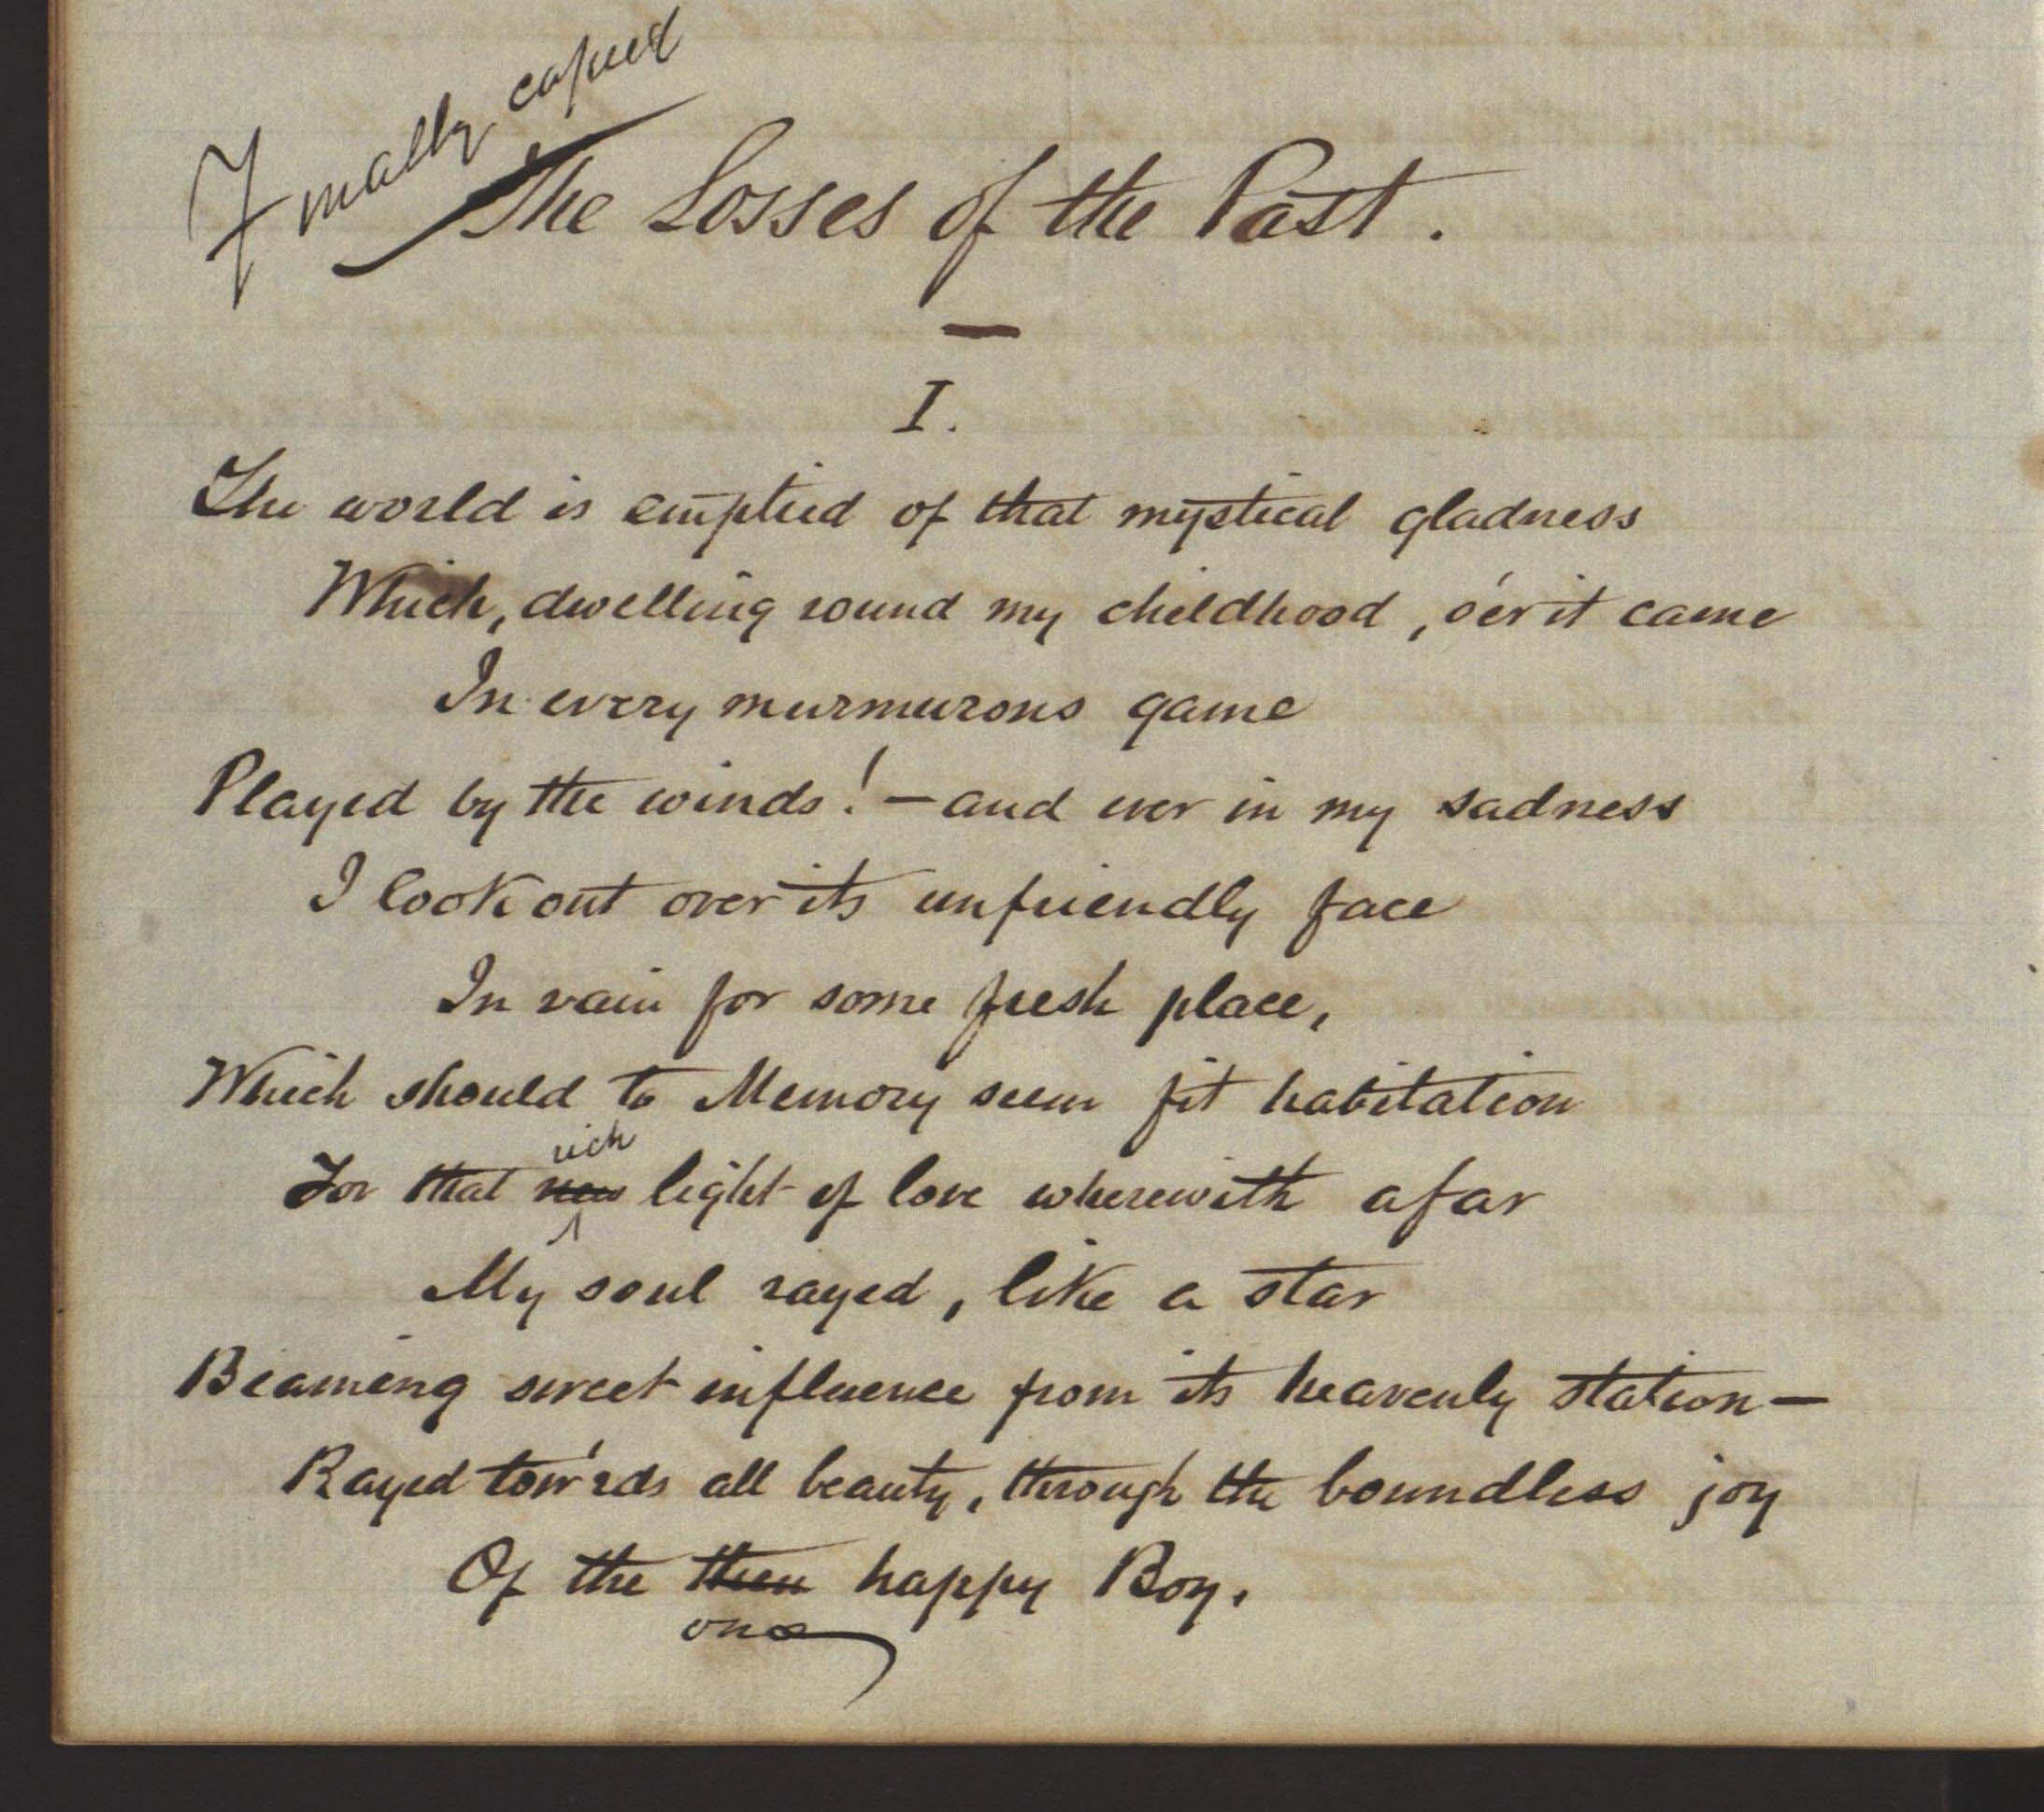 Finally copied
The Losses of the Past.
I.
The world is emptied of that mystical gladness
Which, dwelling round my childhood, o'er it came
In every murmurous game
Played by the winds! — and ever in my sadness
I look out over its unfriendly face
In vain for some fresh place,
Which should to Memory seem fit habitation
rich
For that new light of love wherewith afar
My soul rayed, like a star
Beaming sweet influence from its heavenly station —
Rayed tow'rds all beauty, through the boundless joy
Of the then happy Boy.
once